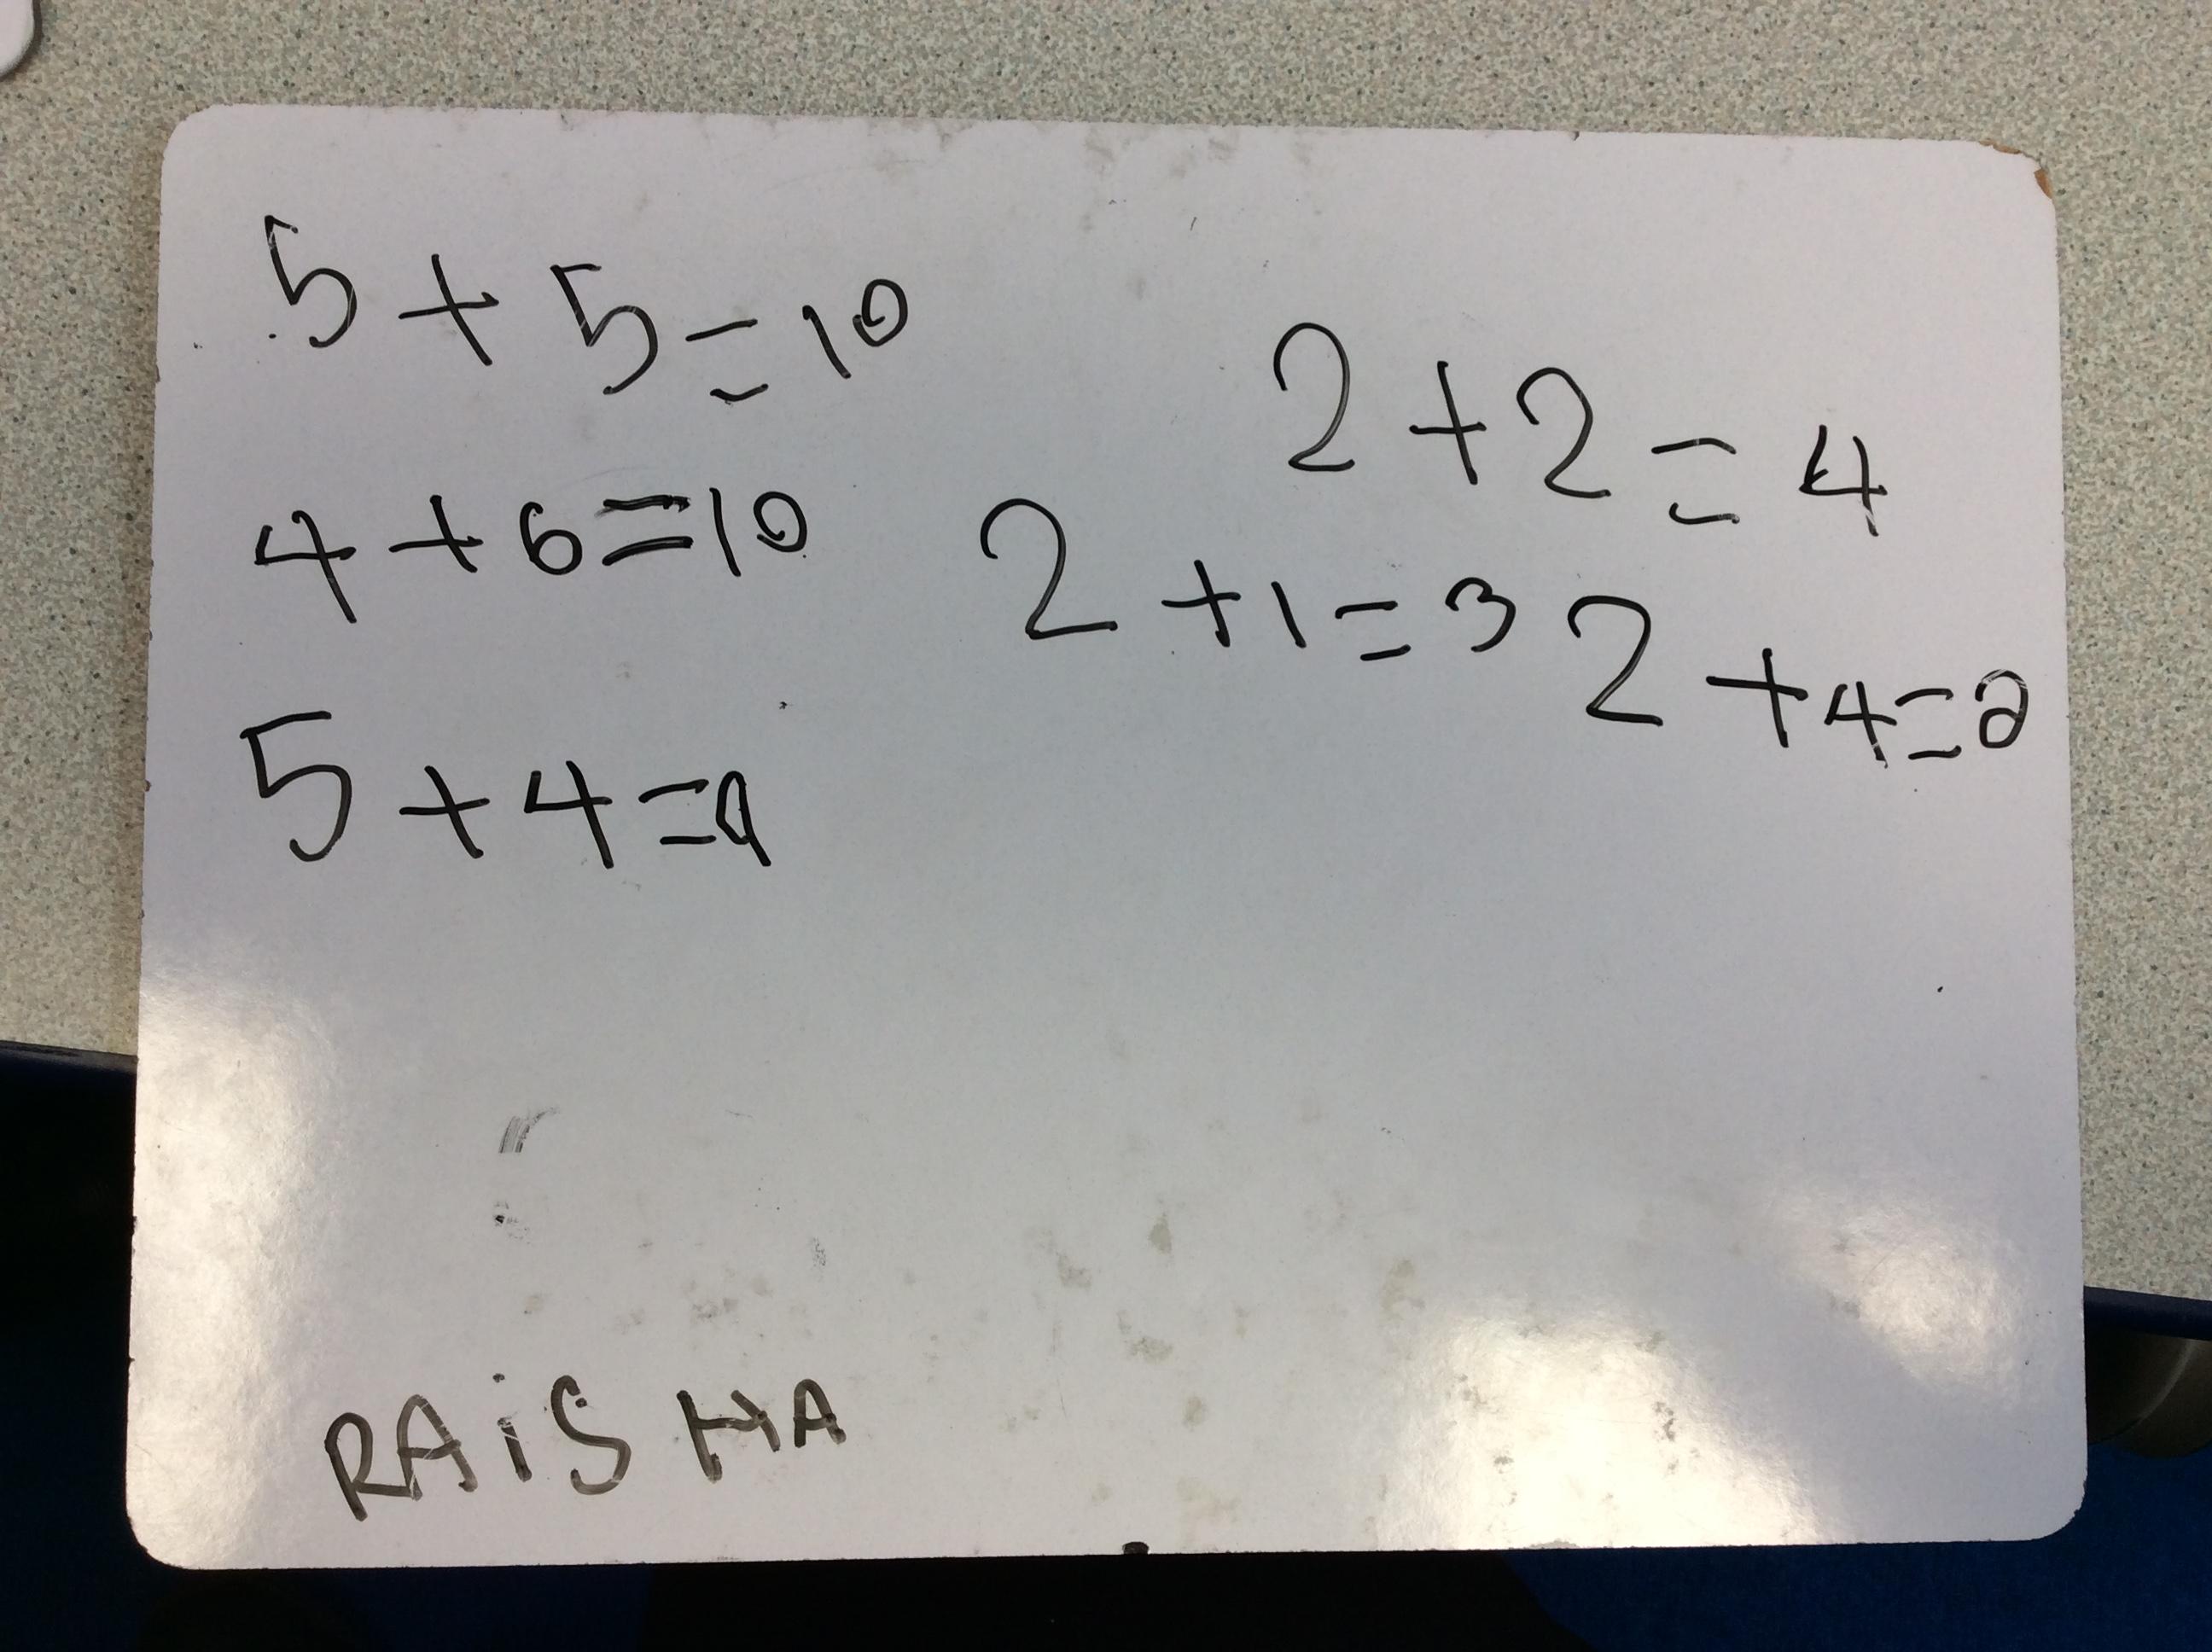 5 + 5 = 10
4 + 6 = 10
5 + 4 = 9
2 + 2 = 4
2 + 1 = 3
2 + 4 =
RAiSHA